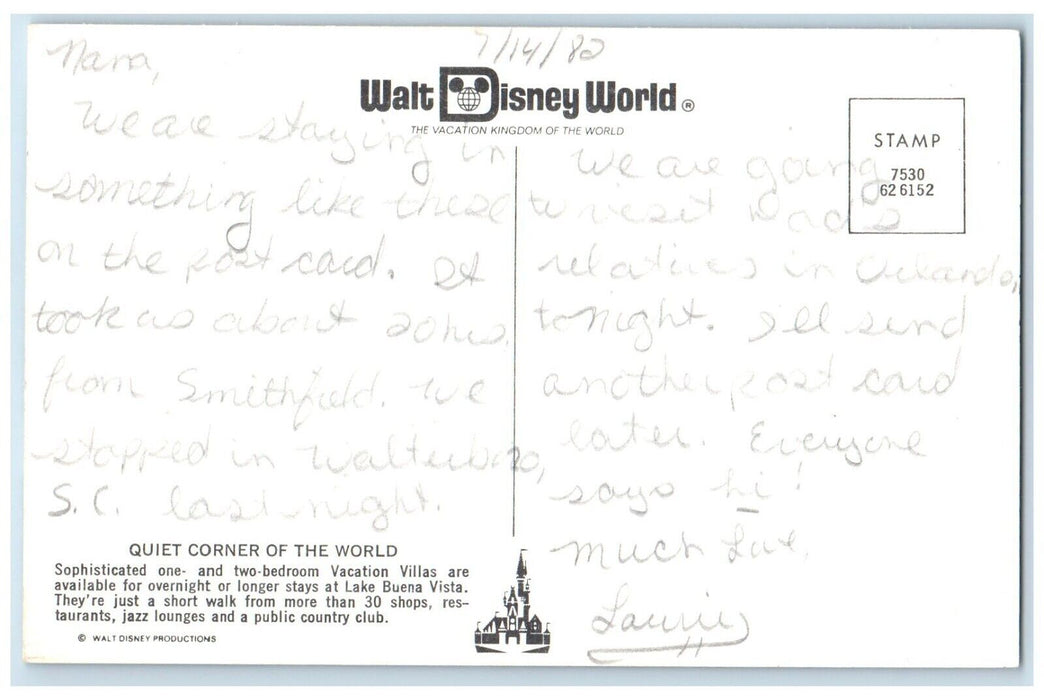 7/14/82
Nana,
We are staying in
something like these
on the post card. It
took us about 20 hrs.
from Smithfield. We
stopped in Walterboro,
S.C. last night.
Walt Disney World®
THE VACATION KINGDOM OF THE WORLD
STAMP
7530
62 6152
We are going
to visit Dad's
relatives in Orlando,
tonight. I'll send
another post card
later. Everyone
says hi!
Much Love,
Laurie
QUIET CORNER OF THE WORLD
Sophisticated one- and two-bedroom Vacation Villas are
available for overnight or longer stays at Lake Buena Vista.
They're just a short walk from more than 30 shops, res-
taurants, jazz lounges and a public country club.
© WALT DISNEY PRODUCTIONS